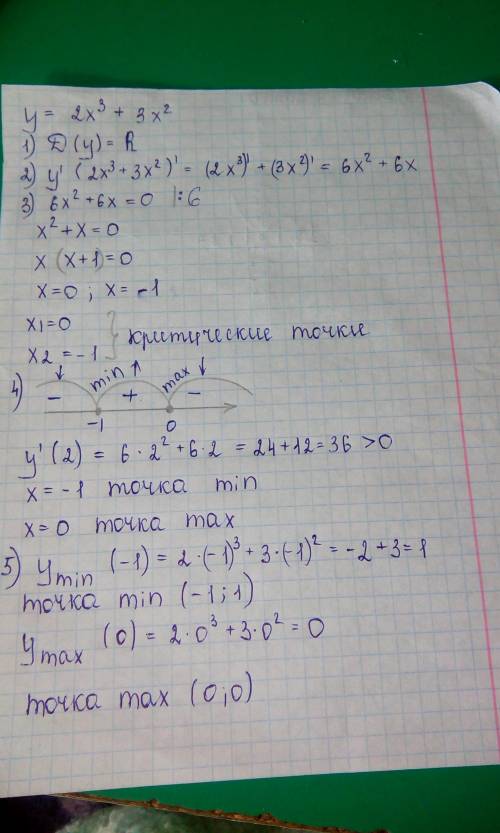 y = 2x³ + 3x²
1) D(y) = R
2) y' (2x³ + 3x²)' = (2x³)' + (3x²)' = 6x² + 6x
3) 6x² + 6x = 0 |:6
x² + x = 0
x (x+1) = 0
x = 0 ; x = -1
x1 = 0
x2 = -1 } критические точки
4) ↓ min ↑ max ↓
- + -
-1 0
y'(2) = 6·2² + 6·2 = 24 + 12 = 36 > 0
x = -1 точка min
x = 0 точка max
5) y min (-1) = 2·(-1)³ + 3·(-1)² = -2 + 3 = 1
точка min (-1 ; 1)
y max (0) = 2·0³ + 3·0² = 0
точка max (0;0)